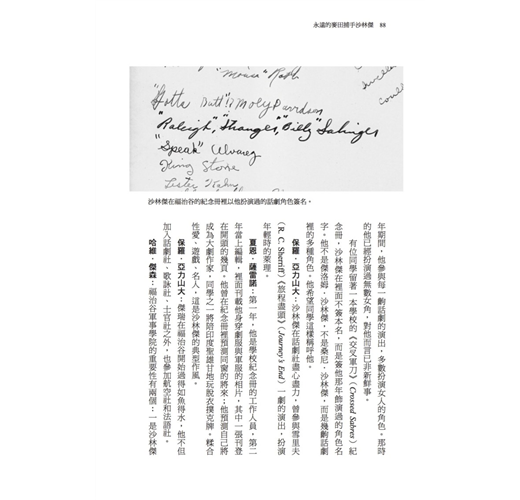 永遠的麥田捕手沙林傑 88
"Mouse"
"Raleigh", "Billy" Salinger
"Speak" Alvarez
King Stone
Lester
沙林傑在福治谷的紀念冊裡以他扮演過的話劇角色簽名。
年期間，他參與每一齣話劇的演出，多數扮演女人的角色。那時
的他已經扮演過無數女角，對他而言已非新鮮事。
有位同學留著一本學校的《交叉軍刀》（Crossed Sabres）紀
念冊，沙林傑在裡面不簽本名，而是簽他那年飾演過的角色名
字。他不是傑洛姆．沙林傑，不是桑尼．沙林傑，而是幾齣話劇
裡的多種角色。他希望同學這樣稱呼他。
保羅．亞力山大：沙林傑在話劇社盡心盡力，曾參與雪里夫
（R. C. Sherriff）《旅程盡頭》（Journey's End）一劇的演出，扮演
年輕時的萊理。
夏恩．薩雷諾：第一年，他是學校紀念冊的工作人員，第二
年當上編輯，裡面刊載他身穿劇服與軍服的相片，其中一張刊登
在開頭的幾頁。他曾在紀念冊裡預測同窗的將來；他預測自己將
成為大劇作家，同學之一將陪印度聖雄甘地玩脫衣撲克牌。糅合
性愛、遊戲、名人，這是沙林傑的典型作風。
保羅．亞力山大：傑瑞在福治谷開始過得如魚得水，他不但
加入話劇社、歌詠社、士官社之外，也參加航空社和法語社。
哈維．傑森：福治谷軍事學院的重要性有兩個：一是沙林傑